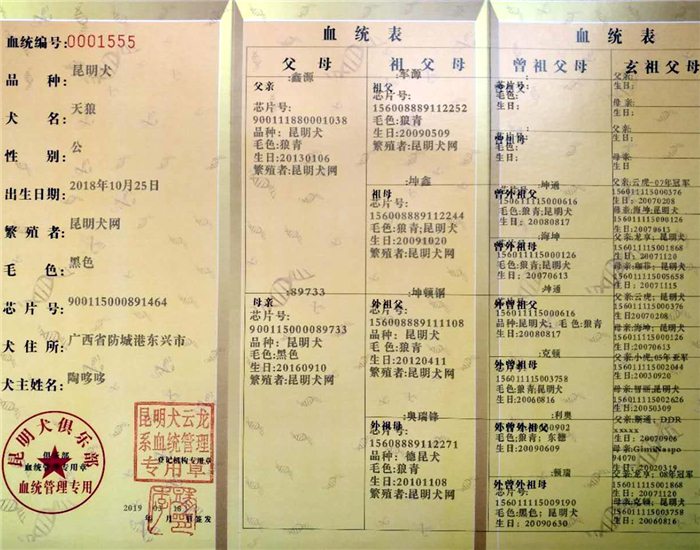 血统编号:0001555
品 种: 昆明犬
犬 名: 天狼
性 别: 公
出生日期: 2018年10月25日
繁殖者: 昆明犬网
毛 色: 黑色
芯片号: 900115000891464
犬住所: 广西省防城港东兴市
犬主姓名: 陶哆哆
昆明犬俱乐部
血统管理专用
昆明犬云龙
系血统管理
专用章
登记机构专用章
2019 03 18
年 月 日签发
血统表
父母
:鑫源
父亲
芯片号:
900111880001038
品种: 昆明犬
毛色:狼青
生日:20130106
繁殖者:昆明犬网
:89733
母亲
芯片号:
900115000089733
毛色:黑色
生日:20160910
繁殖者:昆明犬网
祖父母
:军源
祖父
芯片号:
156008889112252
毛色:狼青
生日:20090509
繁殖者:昆明犬网
:坤鑫
祖母
156008889112244
毛色:狼青;昆明犬
生日:20091020
繁殖者:昆明犬网
外祖父
156008889111108
昆明犬
毛色:狼青
生日:20120411
繁殖者:昆明犬网
:奥瑞锋
外祖母
156088889112271
品种: 德昆犬
毛色:狼青
生日:20101108
繁殖者:昆明犬网
血统表
曾祖父母
芯片号:
毛色:
生日:
芯片号:
毛色:
生日:
:坤通
曾外祖父
毛色:狼青;昆明犬
生日: 20080817
:海坤
曾外祖母
156011115000061
毛色:狼青;昆明犬
生日: 20070613
:坤通
外曾祖父
156011115000616
品种:昆明犬; 毛色:狼青
生日: 20080817
:克顿
外曾祖母
156011115003758
毛色:狼青;昆明犬
生日: 20060816
:利奥
外曾外祖父
毛色:狼青; 东德
生日: 20090609
:顿瑞
外曾外祖母
156011115009190
毛色:黑色; 昆明犬
生日: 20090630
玄祖父母
父亲:
生日:
母亲:
生日:
父亲:
生日:
母亲:
生日:
父亲:云虎-07年冠军
156011115000376
生日: 20070208
母亲:海坤;昆明犬
156011115000061
生日:20070613
父亲:龙亨; 昆明犬
156011115001868
生日: 20071120
156011115000166
生日: 20071115
父亲:云虎; 昆明犬
生日:20070208
母亲:海坤; 昆明犬
156011115000061
生日: 20070613
父亲:小虎;05年亚军
156011115000382
生日: 20030920
156011115002626
生日: 20050309
DDR
xxxxx
生日: 20070906
94070
生日: 20020319
父亲:龙亨; 08年冠军
156011115001868
生日: 20071120
母亲:克顿; 昆明犬
156011115003758
生日: 20060816